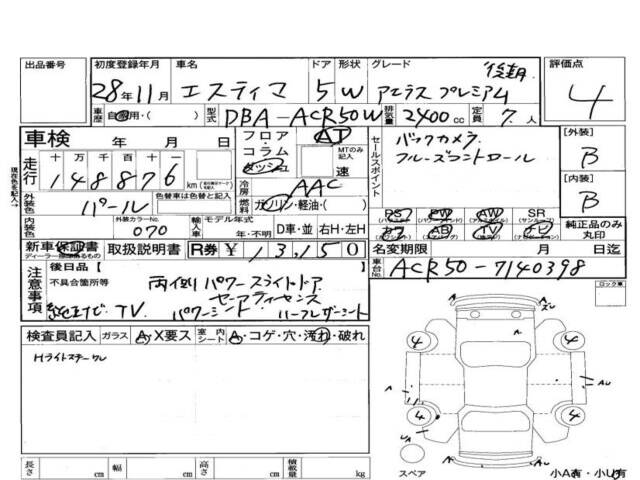 出品番号
初度登録年月 28年11月
車名 エスティマ
ドア 5
形状 W
グレード 後期 アエラス プレミアム
評価点 4
車歴 自家用・( )
型式 DBA-ACR50W
排気量 2400 cc
定員 7 人
車検 年 月 日
フロア・コラム AT
MTのみ記入 速
セールスポイント
バックカメラ
クルーズコントロール
[外装] B
走行 十万千百十一
148876 km
冷房 AAC
[内装] B
外装色 パール
色替車は色替と記入
燃料 ガソリン・軽油・( )
PS PW AW SR
カワ AB TV ナビ
純正品のみ丸印
内装色
外装カラーNo. 070
輸入車 モデル年式 年・不明 D車・並 右H・左H
新車保証書
ディーラー捺印のあるもの
取扱説明書
R券 ¥13,150
名変期限 月 日迄
車台No. ACR50-7140398
現在色を記入→
注意事項
後日品【 】
不具合箇所等
両側パワースライドドア
純正ナビ TV. パワーシート ハーフレザーシート
ロック車
検査員記入 ガラス A・X要ス 室内シート A・コゲ・穴・汚れ・破れ
Hライトスチール
4 4
4 4
A
A
AU
UA
スペア
小A有・小U有
長さ cm 幅 cm 高さ cm 積載量 kg